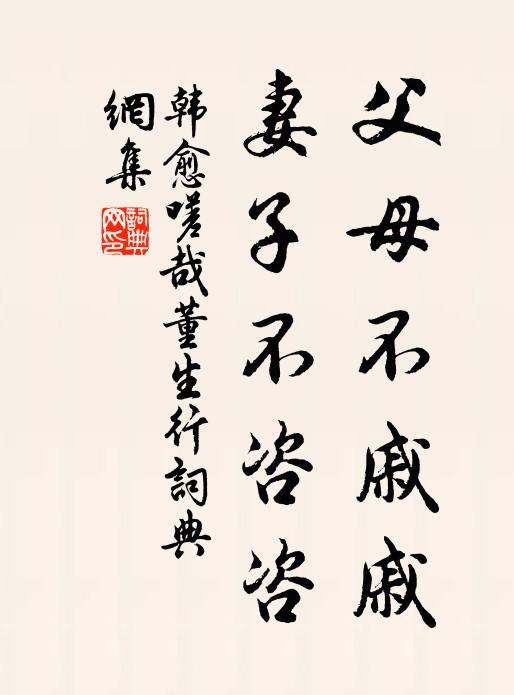 父母不戚戚
妻子不咨咨
韩愈嗟哉董生行詞典
網集
詞典
网印